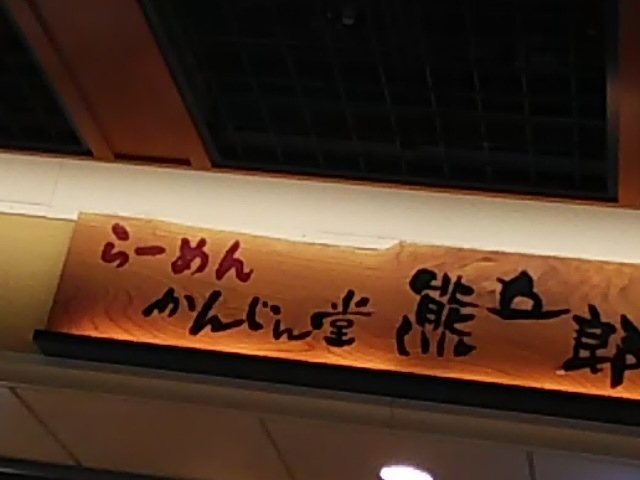 らーめん
かんじん堂
熊五郎